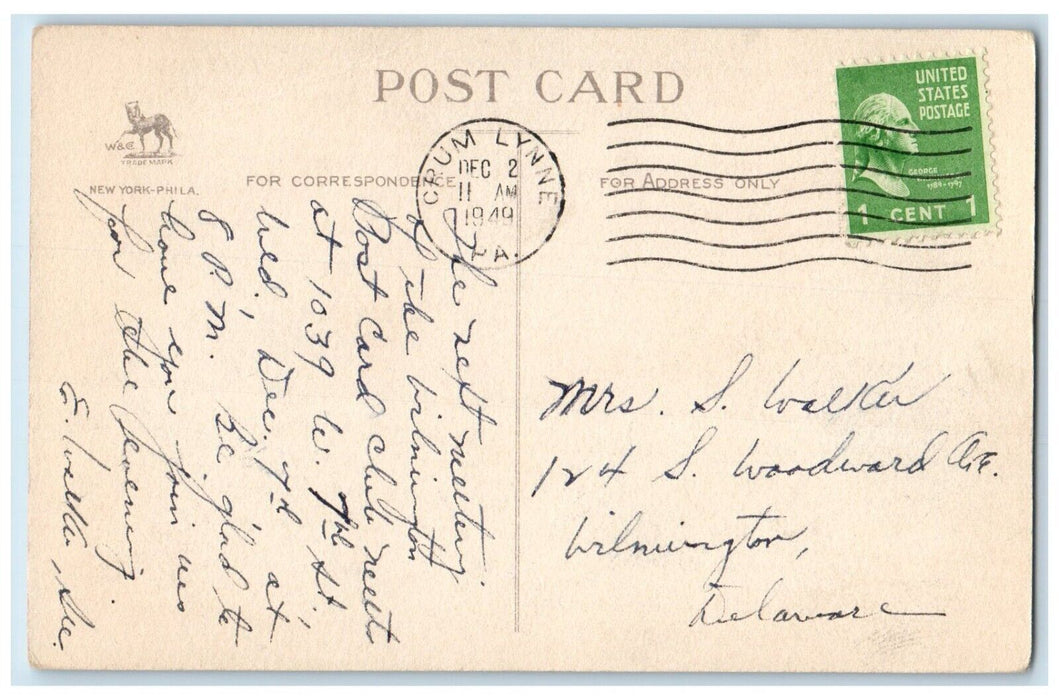 POST CARD
W&C
TRADE MARK
NEW YORK-PHILA.
FOR CORRESPONDENCE
FOR ADDRESS ONLY
CRUM LYNNE
DEC 2
11 AM
1949
PA.
UNITED
STATES
POSTAGE
GEORGE
1789-1797
1 CENT 1
The next meeting
of the Wilmington
Post Card Club meets
at 1039 W. 7th St.
Wed. Dec. 7th at
8 P.M. Be glad to
have you join us
for the evening.
E. Walker, Sec.
Mrs. S. Walker
124 S. Woodward Ave.
Wilmington,
Delaware